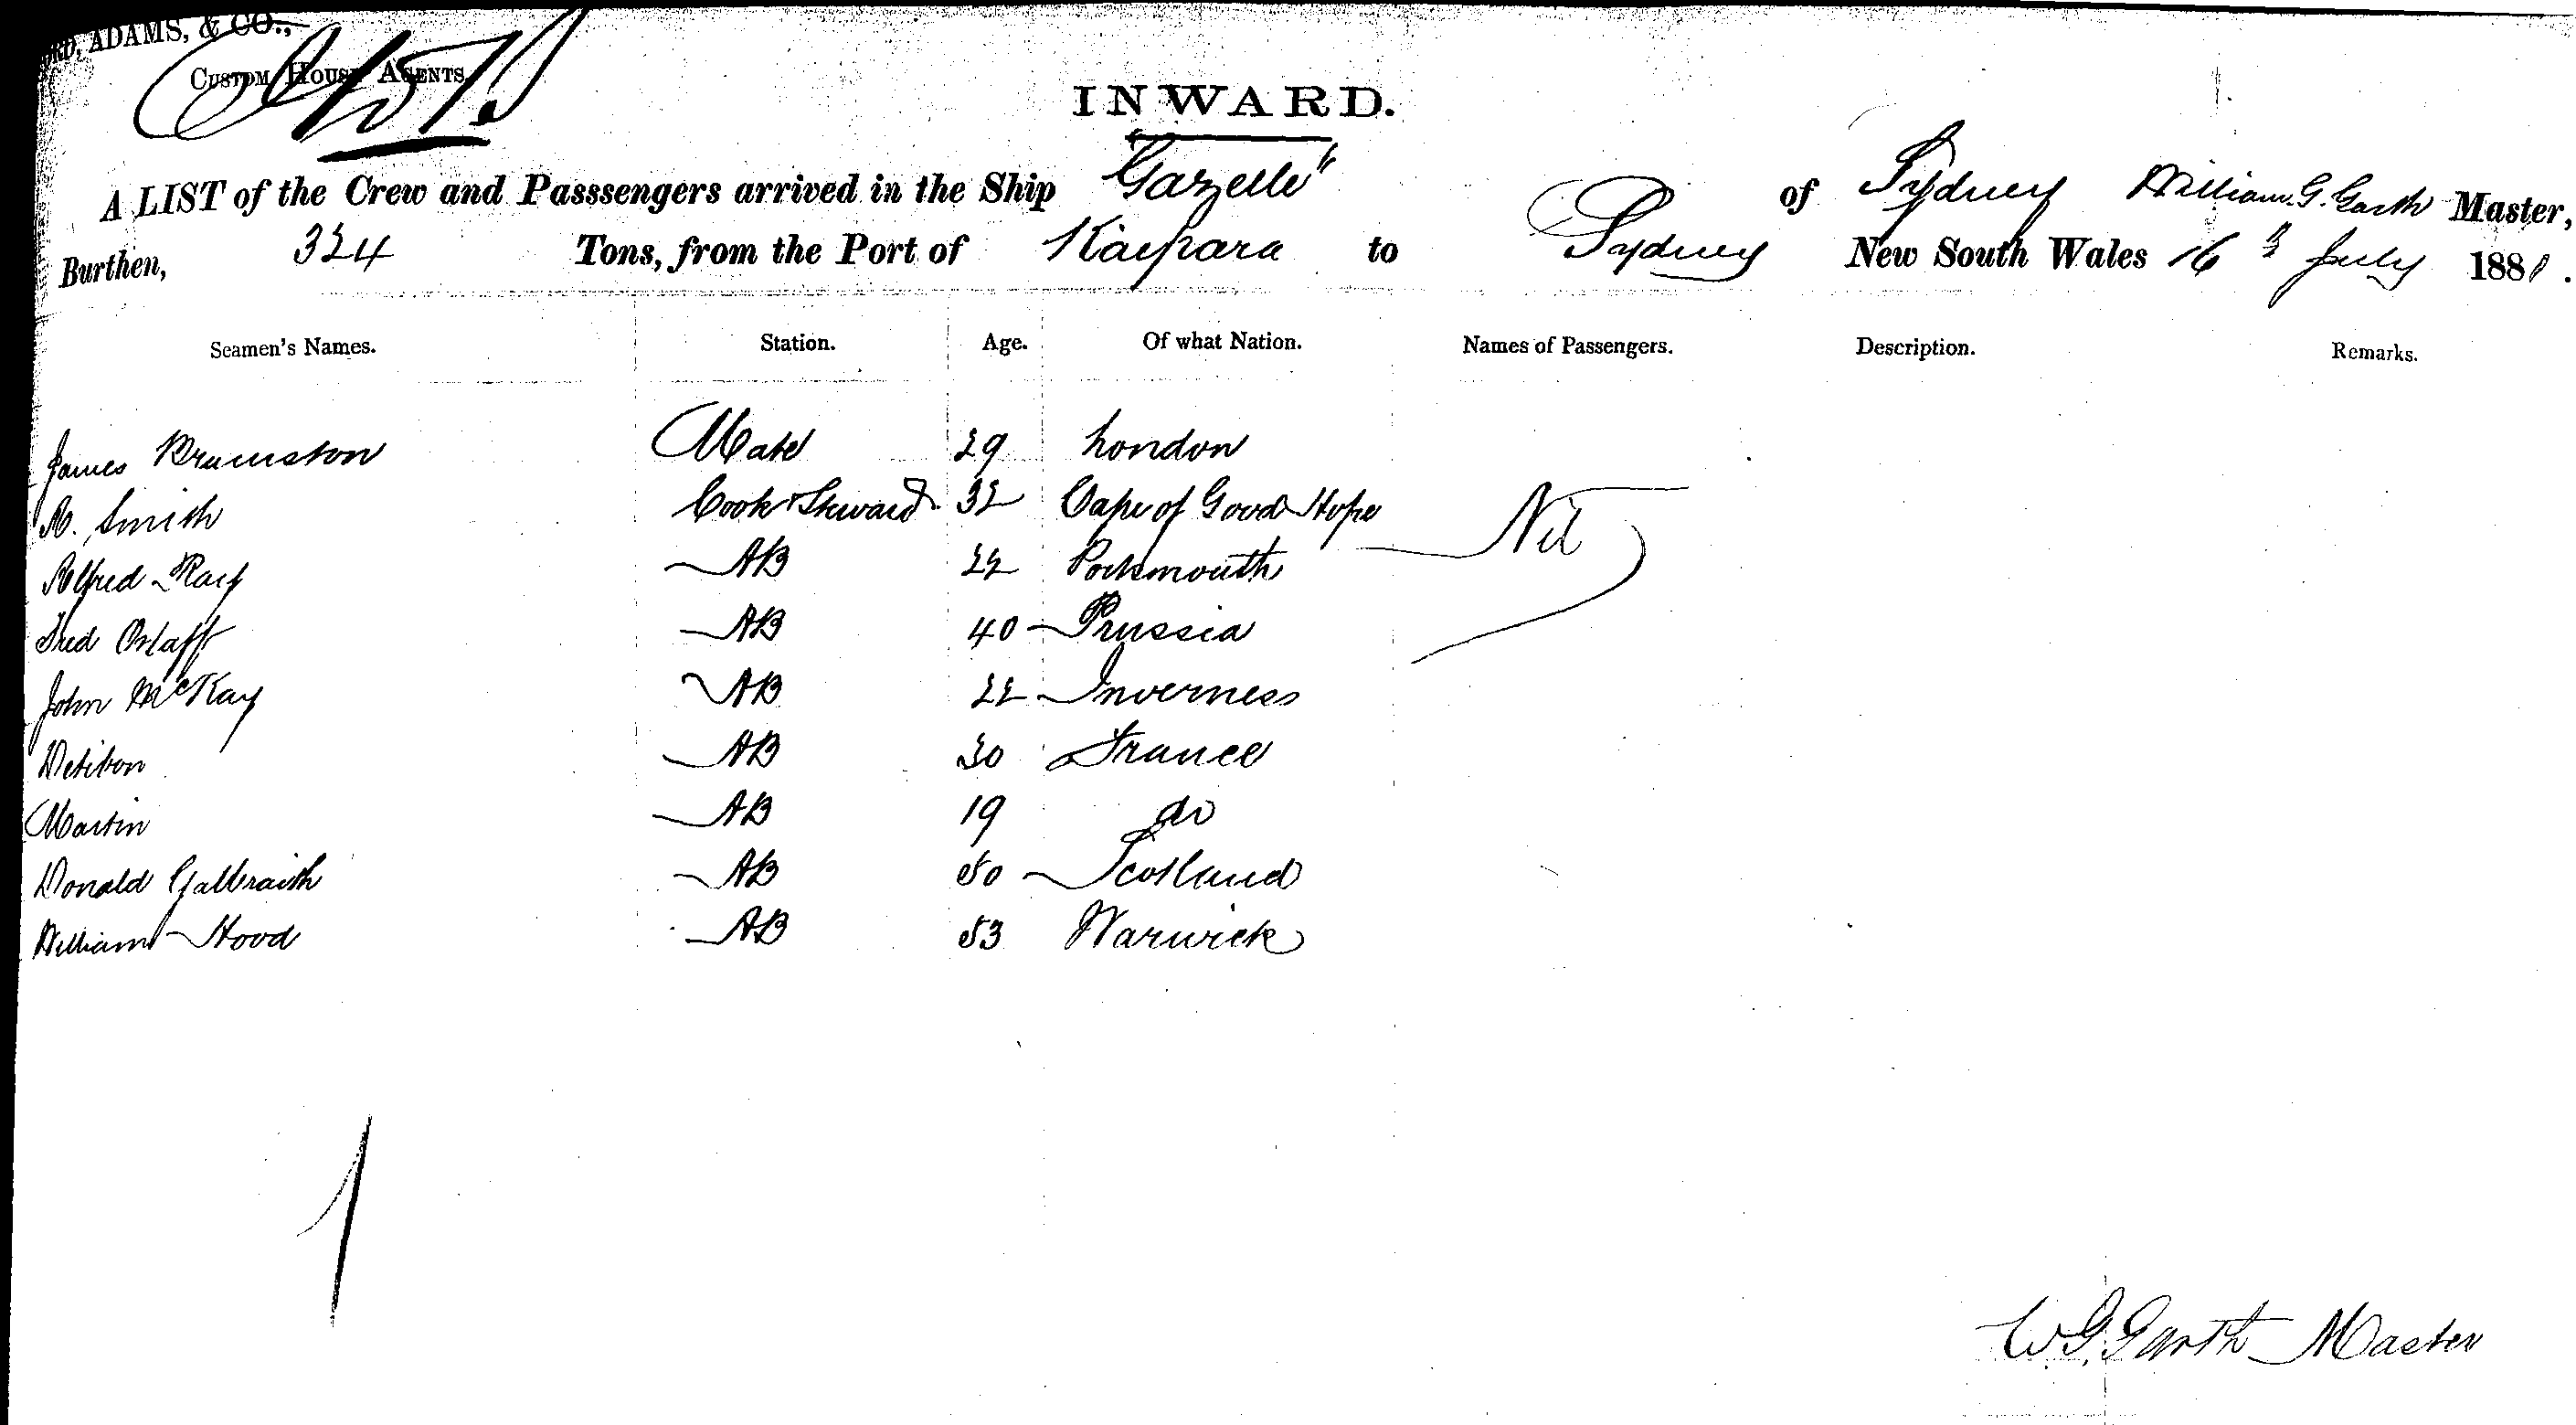 RD, ADAMS, & CO.,
CUSTOM HOUSE AGENTS
INWARD.
A LIST of the Crew and Passsengers arrived in the Ship "Gazelle" of Sydney William G. Garth Master,
Burthen, 324 Tons, from the Port of Kaipara to Sydney New South Wales 16th July 1881.
Seamen's Names. Station. Age. Of what Nation. Names of Passengers. Description. Remarks.
James Brumston Mate 29 London
R. Smith Cook & Steward 32 Cape of Good Hope Nil
Alfred Ray AB 22 Portsmouth
Fred Ostaff AB 40 Prussia
John McKay AB 22 Inverness
AB 20 France
Martin AB 19 do
Donald Galbraith AB 50 Scotland
William Hood AB 53 Warwick
W G Garth Master